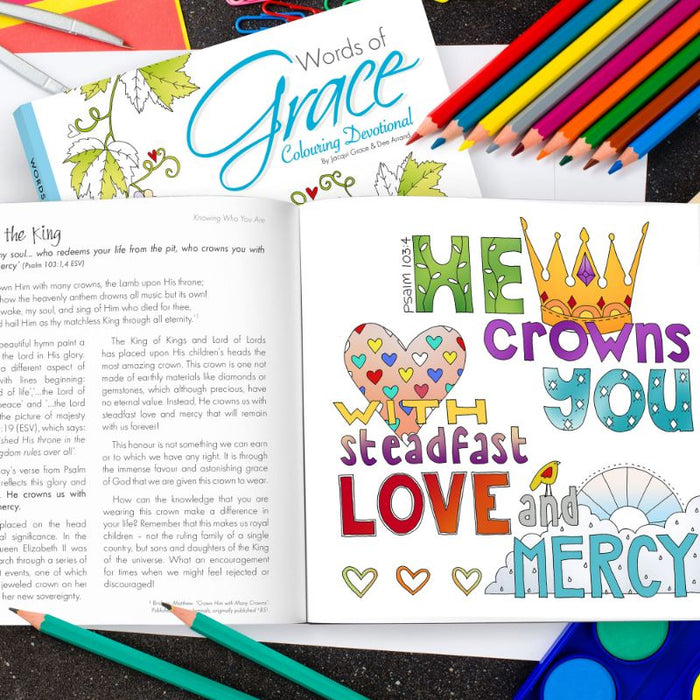 Words of
Grace
Colouring Devotional
By Jacqui Grace & Dee Annand
WORDS
Knowing Who You Are
the King
my soul... who redeems your life from the pit, who crowns you with
mercy' (Psalm 103:1,4 ESV)
Him with many crowns, the Lamb upon His throne;
how the heavenly anthem drowns all music but its own!
wake, my soul, and sing of Him who died for thee,
hail Him as the matchless King through all eternity.'¹
beautiful hymn paint a
the Lord in His glory.
a different aspect of
with lines beginning:
of life','...the Lord of
peace' and '...the Lord
the picture of majesty
:19 (ESV), which says:
ished His throne in the
gdom rules over all'.
day's verse from Psalm
reflects this glory and
He crowns us with
mercy.
placed on the head
al significance. In the
ueen Elizabeth II was
rch through a series of
t events, one of which
jeweled crown on her
her new sovereignty.
The King of Kings and Lord of Lords
has placed upon His children's heads the
most amazing crown. This crown is not
made of earthly materials like diamonds or
gemstones, which although precious, have
no eternal value. Instead, He crowns us with
steadfast love and mercy that will remain
with us forever!
This honour is not something we can earn
or to which we have any right. It is through
the immense favour and astonishing grace
of God that we are given this crown to wear.
How can the knowledge that you are
wearing this crown make a difference in
your life? Remember that this makes us royal
children - not the ruling family of a single
country, but sons and daughters of the King
of the universe. What an encouragement
for times when we might feel rejected or
discouraged!
Matthew. "Crown Him with Many Crowns".
originally published 1851
Psalm 103:4
HE
crowns
YOU
WITH
steadfast
LOVE and
MERCY